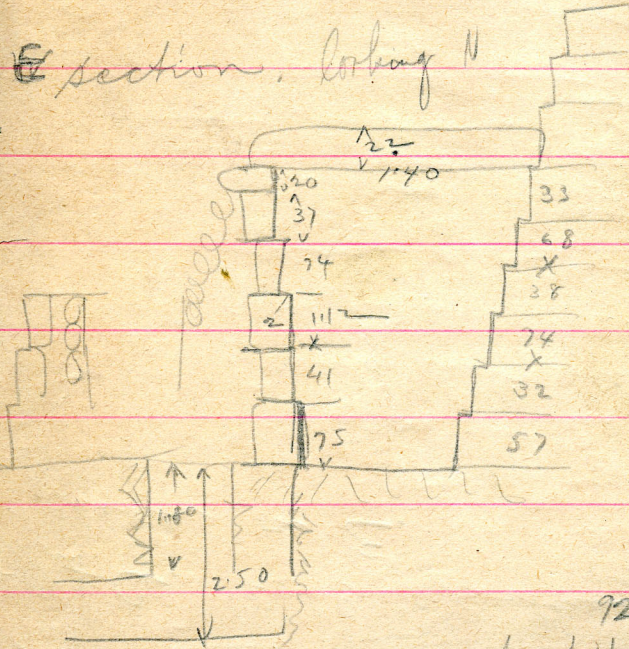 E section. looking N
22
1.40
20
37
74
2
1.12
41
75
33
68
38
74
32
57
1.80
2.50
92